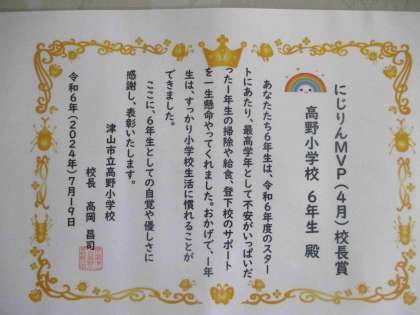 にじりんMVP(4月)校長賞
高野小学校 6年生 殿
あなたたち6年生は、令和6年度のスター
トにあたり、最高学年として不安がいっぱいだ
った1年生の掃除や給食、登下校のサポート
を一生懸命やってくれました。おかげで、1年
生は、すっかり小学校生活に慣れることが
できました。
ここに、6年生としての自覚や優しさに
感謝し、表彰いたします。
令和6年(2024年)7月19日
津山市立高野小学校
校長 高岡 昌司